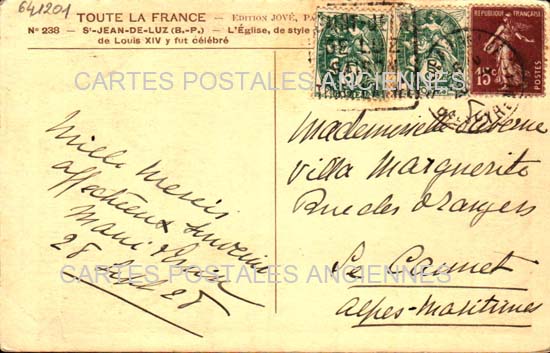 641201
TOUTE LA FRANCE — EDITION JOVÉ, PA
N° 238 — St-JEAN-DE-LUZ (B.-P.) — L'Église, de style
de Louis XIV y fut célébré
RÉPUBLIQUE FRANÇAISE
15c
POSTES
CARTES POSTALES ANCIENNES
Mademoiselle
Villa Marguerite
Rue des Orangers
Le Cannet
Alpes-Maritimes
Mille Mercis
affectueux souvenir
28
CARTES POSTALES ANCIENNES